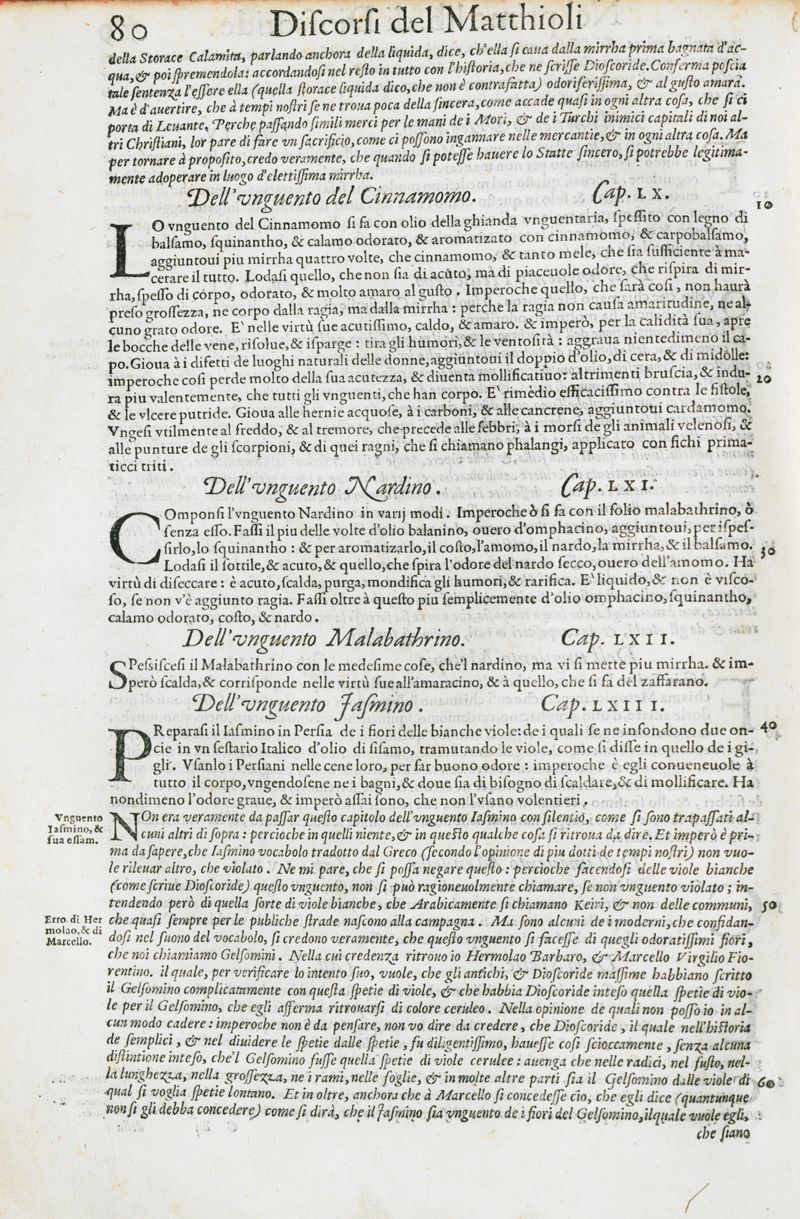 80 Diſcorſi del Matthioli
della Storace Calamita, parlando anchora della liquida, dice, ch'ella ſi caua dalla mirrha prima bagnata d'ac-
qua, & poi ſpremendola: accordandoſi nel reſto in tutto con l'hiſtoria, che ne ſcriſſe Dioſcoride. Conferma poſcia
tale ſentenza l'eſſere ella (quella ſtorace liquida dico, che non è contrafatta) odoriferiſſima, & al guſto amara.
Ma è d'auertire, che à tempi noſtri ſe ne troua poca della ſincera, come accade quaſi in ogni altra coſa, che ſi ci
porta di Leuante. Perche paſſando ſimili merci per le mani de i Mori, & de i Turchi inimici capitali di noi al-
tri Chriſtiani, lor pare di fare vn ſacrificio, come ci poſſono ingannare nelle mercantie, & in ogni altra coſa. Ma
per tornare à propoſito, credo veramente, che quando ſi poteſſe hauere lo Statte ſincero, ſi potrebbe legitima-
mente adoperare in luogo d'elettiſſima mirrha.
Dell'vnguento del Cinnamomo. Cap. LX.
10
LO vnguento del Cinnamomo ſi fa con olio della ghianda vnguentaria, ſpeſſito con legno di
balſamo, ſquinantho, & calamo odorato, & aromatizato con cinnamomo, & carpobalſamo,
aggiuntoui piu mirrha quattro volte, che cinnamomo, & tanto mele, che ſia ſufficiente à ma-
cerare il tutto. Lodaſi quello, che non ſia di acuto, mà di piaceuole odore, che riſpira di mir-
rha, ſpeſſo di corpo, odorato, & molto amaro al guſto. Imperoche quello, che ſarà coſi, non haurà
preſo groſſezza, ne corpo dalla ragia, ma dalla mirrha: perche la ragia non cauſa amaritudine, ne al-
cuno grato odore. E' nelle virtù ſue acutiſſimo, caldo, & amaro. & imperò, per la calidità ſua, apre
le bocche delle vene, riſolue, & iſparge: tira gli humori, & le ventoſità: aggraua nientedimeno il ca-
po. Gioua à i difetti de luoghi naturali delle donne, aggiuntoui il doppio d'olio, di cera, & di midolle:
imperoche coſi perde molto della ſua acutezza, & diuenta mollificatiuo: altrimenti bruſcia, & indu- 20
ra piu valentemente, che tutti gli vnguenti, che han corpo. E' rimedio efficaciſſimo contra le fiſtole,
& le vlcere putride. Gioua alle hernie acquoſe, à i carboni, & alle cancrene, aggiuntoui cardamomo.
Vngeſi vtilmente al freddo, & al tremore, che precede alle febbri, à i morſi de gli animali velenoſi, &
alle punture de gli ſcorpioni, & di quei ragni, che ſi chiamano phalangi, applicato con fichi prima-
ticci triti.
Dell'vnguento Nardino. Cap. LXI.
COmponſi l'vnguento Nardino in varij modi. Imperoche ò ſi fa con il folio malabathrino, ò
ſenza eſſo. Faſſi il piu delle volte d'olio balanino, ouero d'omphacino, aggiuntoui, per iſpeſ-
ſirlo, lo ſquinantho: & per aromatizarlo, il coſto, l'amomo, il nardo, la mirrha, & il balſamo. 30
Lodaſi il ſottile, & acuto, & quello, che ſpira l'odore del nardo ſecco, ouero dell'amomo. Ha
virtù di diſeccare: è acuto, ſcalda, purga, mondifica gli humori, & rarifica. E' liquido, & non è viſco-
ſo, ſe non v'è aggiunto ragia. Faſſi oltre à queſto piu ſemplicemente d'olio omphacino, ſquinantho,
calamo odorato, coſto, & nardo.
Dell'vnguento Malabathrino. Cap. LXII.
SPeſſiſceſi il Malabathrino con le medeſime coſe, che'l nardino, ma vi ſi mette piu mirrha. & im-
però ſcalda, & corriſponde nelle virtù ſue all'amaracino, & à quello, che ſi fa del zaffarano.
Dell'vnguento Iaſmino. Cap. LXIII.
PReparaſi il Iaſmino in Perſia de i fiori delle bianche viole: de i quali ſe ne infondono due on- 40
cie in vn ſeſtario Italico d'olio di ſiſamo, tramutando le viole, come ſi diſſe in quello de i gi-
gli. Vſanlo i Perſiani nelle cene loro, per far buono odore: imperoche è egli conueneuole à
tutto il corpo, vngendoſene ne i bagni, & doue ſia di biſogno di ſcaldare, & di mollificare. Ha
nondimeno l'odore graue, & imperò aſſai ſono, che non l'vſano volentieri.
Vnguento
Iaſmino, &
ſua eſſam.
NOn era veramente da paſſar queſto capitolo dell'vnguento Iaſmino con ſilentio, come ſi ſono trapaſſati al-
cuni altri di ſopra: percioche in quelli niente, & in queſto qualche coſa ſi ritroua da dire. Et imperò è pri-
ma da ſapere, che Iaſmino vocabolo tradotto dal Greco (ſecondo l'opinione di piu dotti de tempi noſtri) non vuo-
le rileuar altro, che violato. Ne mi pare, che ſi poſſa negare queſto: percioche facendoſi delle viole bianche
(come ſcriue Dioſcoride) queſto vnguento, non ſi può ragioneuolmente chiamare, ſe non vnguento violato; in-
tendendo però di quella ſorte di viole bianche, che Arabicamente ſi chiamano Keiri, & non delle communi, 50
Erro. di Her
molao, & di
Marcello.
che quaſi ſempre per le publiche ſtrade naſcono alla campagna. Ma ſono alcuni de i moderni, che confidan-
doſi nel ſuono del vocabolo, ſi credono veramente, che queſto vnguento ſi faceſſe di quegli odoratiſſimi fiori,
che noi chiamiamo Gelſomini. Nella cui credenza ritrouo io Hermolao Barbaro, & Marcello Virgilio Fio-
rentino. il quale, per verificare lo intento ſuo, vuole, che gli antichi, & Dioſcoride maſſime habbiano ſcritto
il Gelſomino complicatamente con queſta ſpetie di viole, & che habbia Dioſcoride inteſo quella ſpetie di vio-
le per il Gelſomino, che egli afferma ritrouarſi di colore ceruleo. Nella opinione de quali non poſſo io in al-
cun modo cadere: imperoche non è da penſare, non vo dire da credere, che Dioſcoride, il quale nell'hiſtoria
de ſemplici, & nel diuidere le ſpetie dalle ſpetie, fu diligentiſſimo, haueſſe coſi ſcioccamente, ſenza alcuna
diſtintione inteſo, che'l Gelſomino fuſſe quella ſpetie di viole cerulee: auenga che nelle radici, nel fuſto, nel-
la lunghezza, nella groſſezza, ne i rami, nelle foglie, & in molte altre parti ſia il Gelſomino dalle viole di 60
qual ſi voglia ſpetie lontano. Et in oltre, anchora che à Marcello ſi concedeſſe ciò, che egli dice (quantunque
non ſi gli debba concedere) come ſi dirà, che il Iaſmino ſia vnguento de i fiori del Gelſomino, ilquale vuole egli,
che ſiano